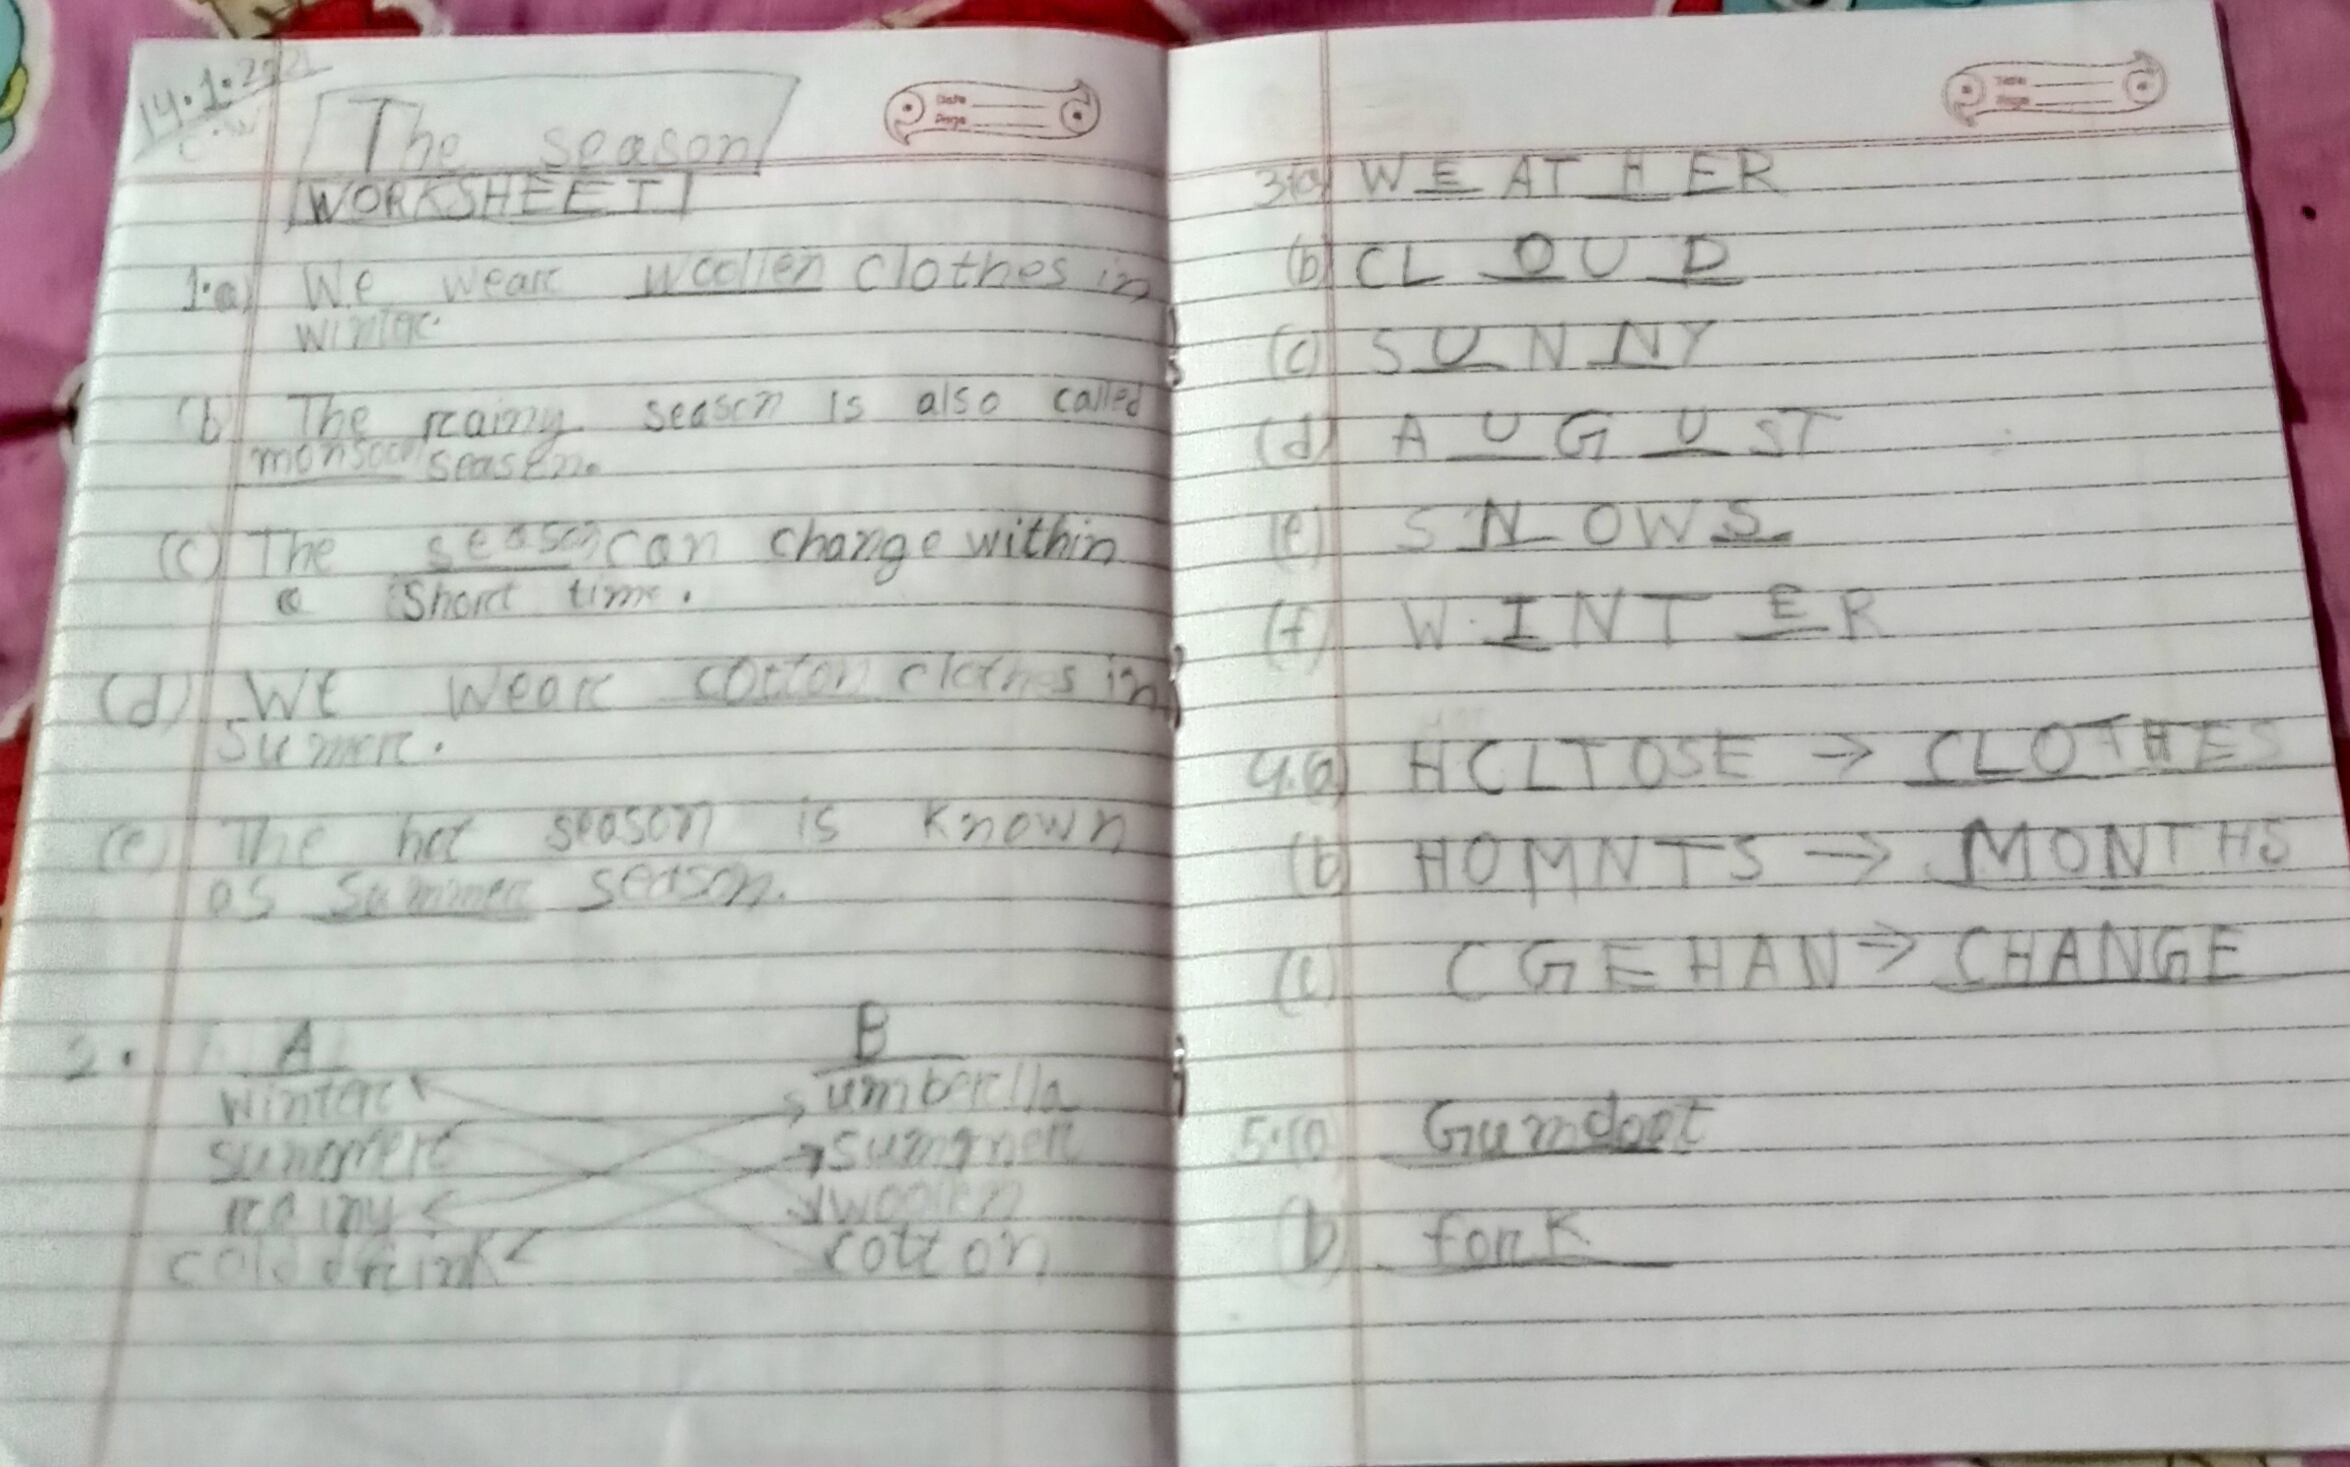 14.1.202
C.W
The season
WORKSHEET
Date
Page
1.a) We wear woollen clothes in
winter.
(b) The rainy season is also called
monsoon season.
(c) The season can change within
a short time.
(d) We wear cotton clothes in
Sumer.
(e) The hot season is known
as Summer season.
2. A B
winter umberlla
summer summer
rainy woolen
cold drink cotton
Date
Page
3.(a) W E AT H ER
(b) CL O U D
(c) S U N N Y
(d) A U G U ST
(e) S N OW S
(f) W I NT E R
4.(a) HCLTOSE → CLOTHES
(b) HOMNTS → MONTHS
(c) CGEHAN → CHANGE
5.(a) Gumdoot
(b) fork